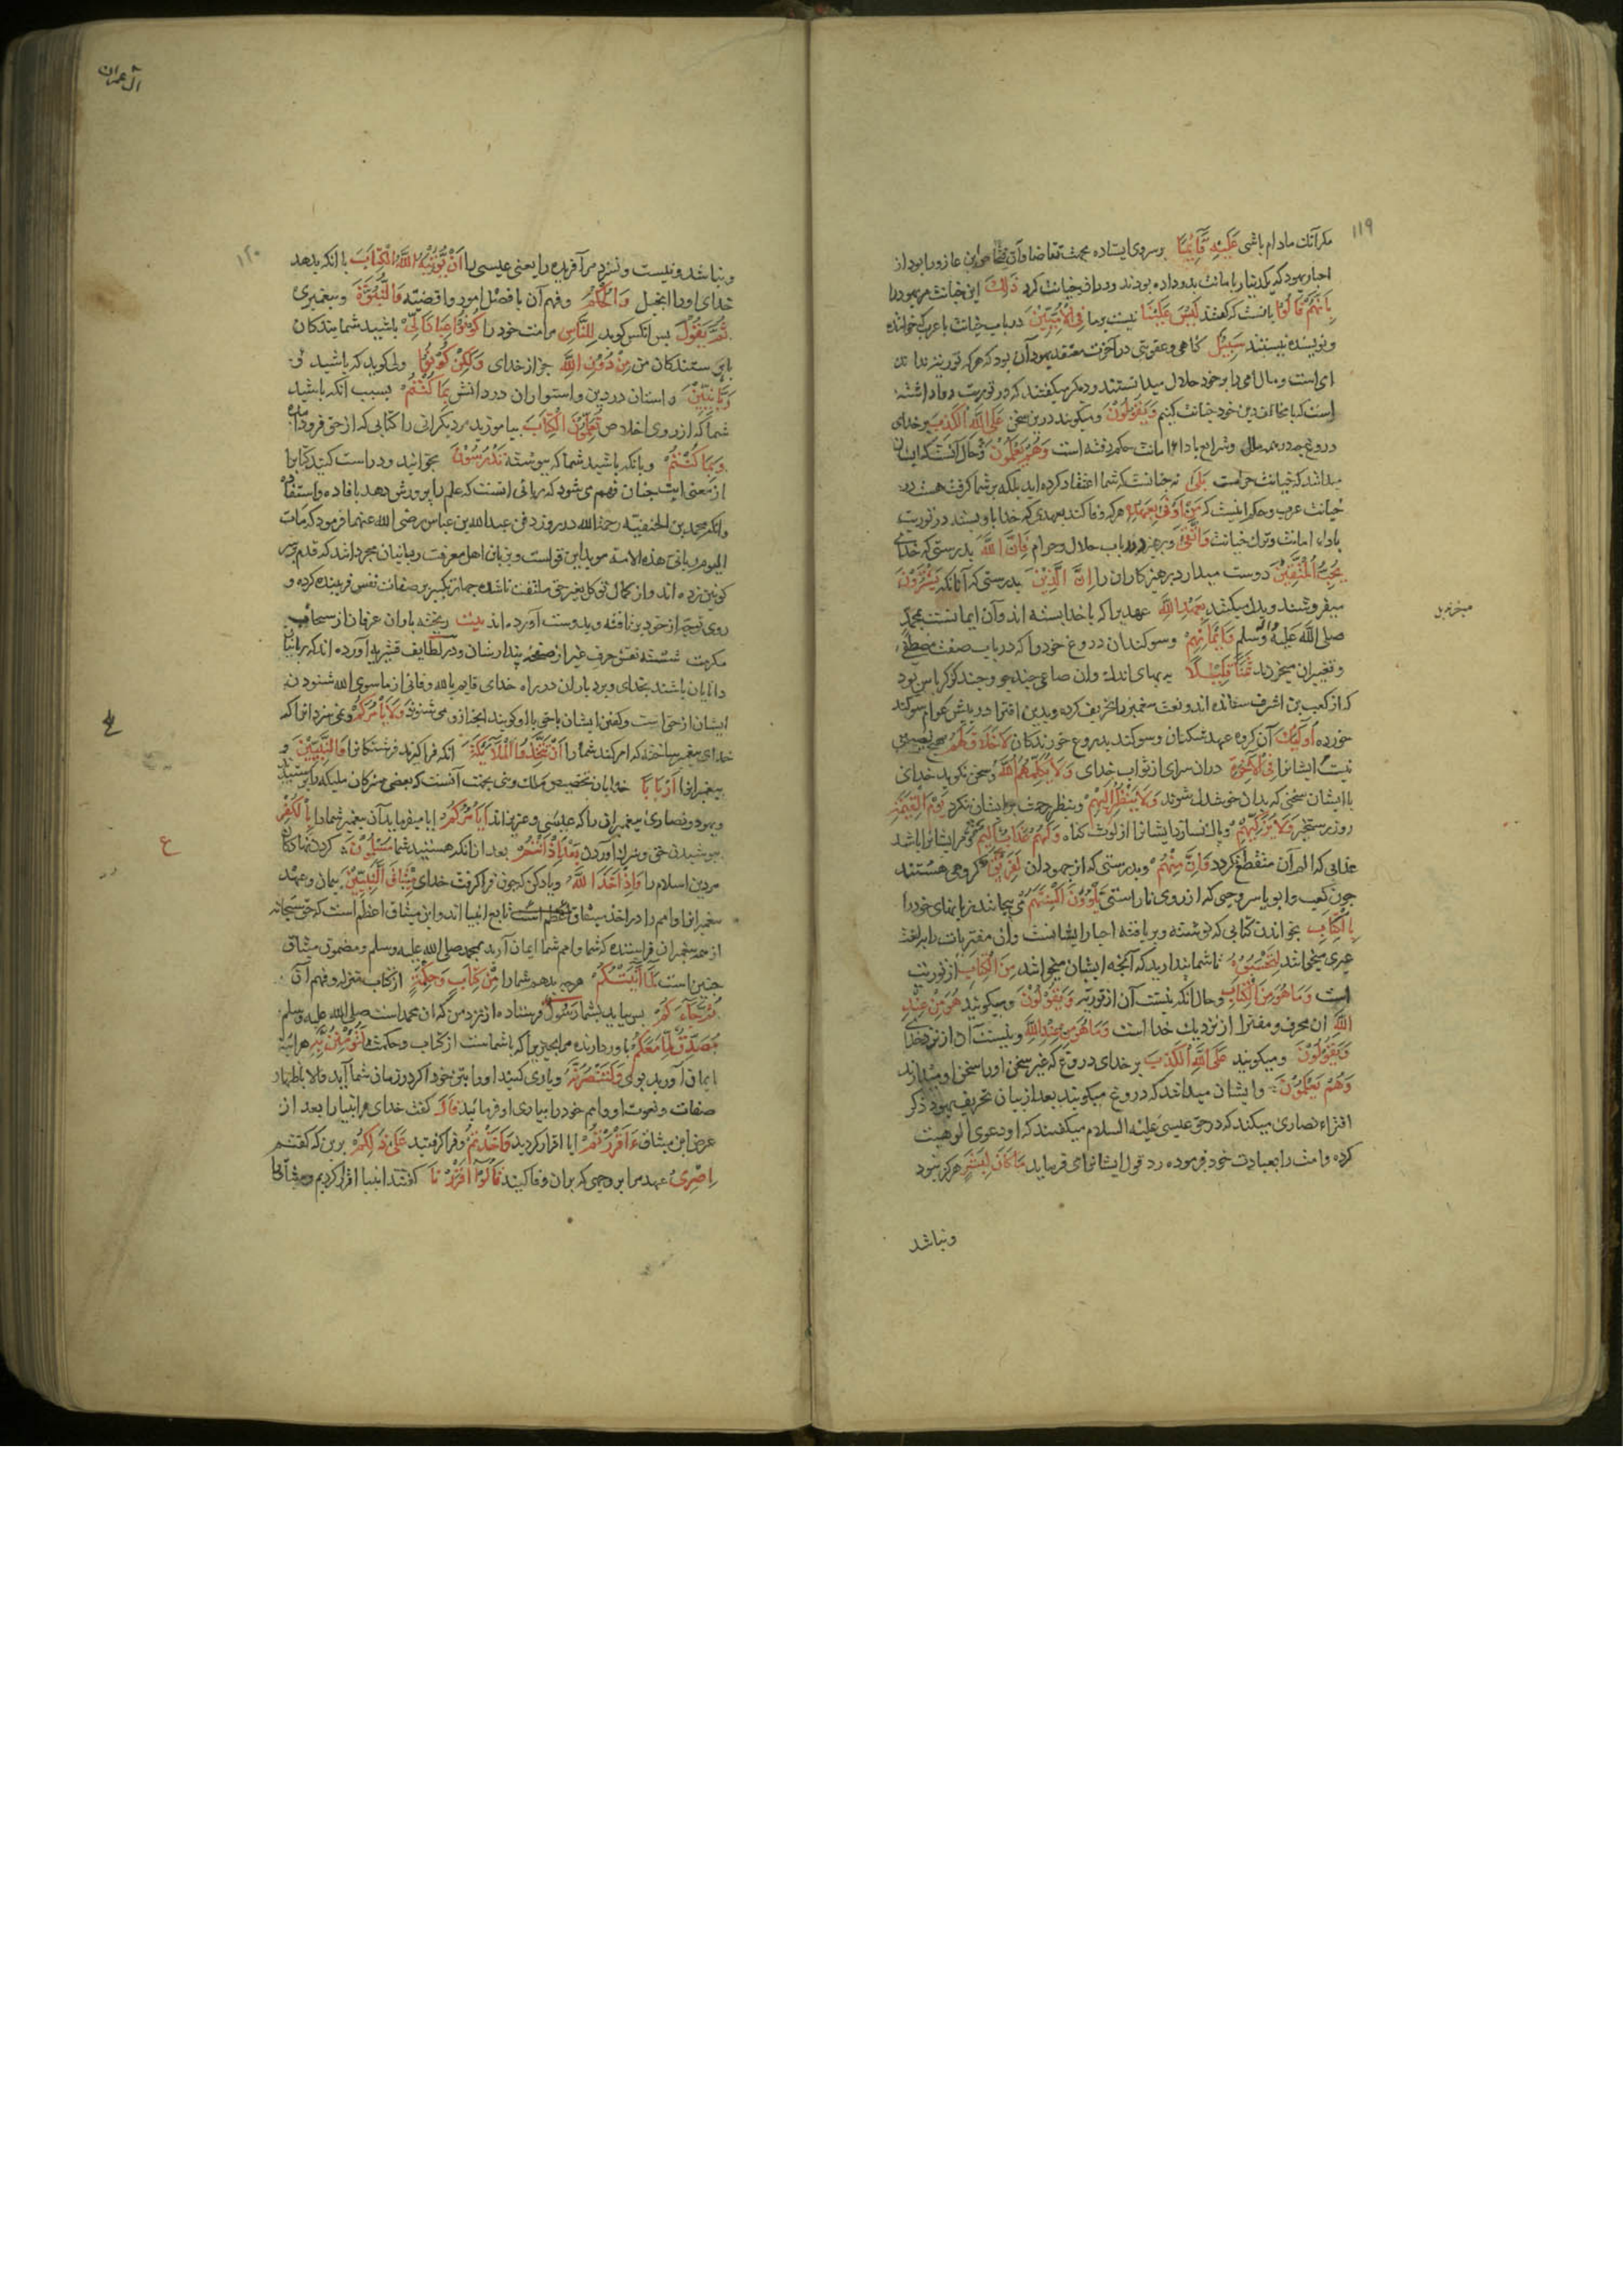 ۱۱۹
مکر آنک مادام باشی عَلَیْهِ قَآئِمًا بر سر وی ایستاده بجهت تقاضا و آن
احبار یهود که یکدینار بامانت بدو داده بودند و در ان خیانت کرد ذٰلِکَ این خیانت مر یهود را
بِاَنَّهُمْ قَالُوْا بانست که کفتند لَیْسَ عَلَیْنَا نیست بر ما فِی الْاُمِّیِّیْنَ در باب خیانت با عرب که خواننده
و نویسنده نیستند سَبِیْلٌ کناهی و عقوبتی در آخرت معتقد یهود آن بود که هر که
است و مال امی را بر خود حلال میدانستند و دیکر میکفتند که در توریت روا داشته
است که با مخالفان دین خود خیانت کنیم وَیَقُوْلُوْنَ و میکویند درین سخن عَلَی اللّٰهِ الْکَذِبَ بر خدای
دروغ چه در همه ملل و شرایع باداء امانت حکم رفته است وَهُمْ یَعْلَمُوْنَ و حال آنست که ایشان
میدانند که خیانت حرامست بَلٰی نه چنانست که شما اعتقاد کرده اید بلکه بر شما کرفت هست در
خیانت عرب و حکم اینست که مَنْ اَوْفٰی بِعَهْدِهِ هر که وفا کند بعهدی که خدا با او بسته در توریت
باداء امانت و ترک خیانت وَاتَّقٰی و بپرهیزد در باب حلال و حرام فَاِنَّ اللّٰهَ بدرستی که خدای
یُحِبُّ الْمُتَّقِیْنَ دوست میدارد پرهیزکاران را اِنَّ الَّذِیْنَ بدرستی که آنانکه یَشْتَرُوْنَ
میفروشند و بدل میکنند بِعَهْدِ اللّٰهِ عهدیرا که با خدا بسته اند و آن ایمانست بمحمد
صلی اللّٰه علیه و آله وسلم وَاَیْمَانِهِمْ و سوکندان دروغ خود را که در باب صفت مصطفی
و تغییر ان میخرند ثَمَنًا قَلِیْلًا به بهای اندک و ان صاعی چند جو و چند کز کرباس بود
که از کعب بن اشرف ستانده اند و نعت پیغمبر را تحریف کرده و بدین افترا در پیش عوام سوکند
خورده اُولٰئِکَ آن کروه عهد شکنان و سوکند بدروغ خورندکان لَا خَلَاقَ لَهُمْ هیچ نصیبی
نیست ایشانرا فِی الْاٰخِرَةِ دران سرای از ثواب خدای وَلَا یُکَلِّمُهُمُ اللّٰهُ و سخن نکوید خدای
با ایشان سخنی که بدان خوشدل شوند وَلَا یَنْظُرُ اِلَیْهِمْ و بنظر رحمت بر ایشان ننکرد یَوْمَ الْقِیٰمَةِ
روز رستخیز وَلَا یُزَکِّیْهِمْ و پاک نسازد ایشانرا از لوث کناه وَلَهُمْ عَذَابٌ اَلِیْمٌ و مر ایشانرا باشد
عذابی که الم آن منقطع نکردد وَاِنَّ مِنْهُمْ و بدرستی که از جهودان لَفَرِیْقًا کروهی هستند
چون کعب و ابو یاسر و حیی که از روی ناراستی یَلْوُوْنَ اَلْسِنَتَهُمْ می پیچانند زبانهای خود را
بِالْکِتَابِ بخواندن کتابی که نوشته و بر بافته احبار ایشانست و ان مفتریات را بلغت
عبری میخوانند لِتَحْسَبُوْهُ تا شما پندارید که آنچه ایشان میخوانند مِنَ الْکِتَابِ از توریت
است وَمَا هُوَ مِنَ الْکِتَابِ و حال انکه نیست آن از توریة وَیَقُوْلُوْنَ و میکویند هُوَ مِنْ عِنْدِ
اللّٰهِ ان محرف و مفترا از نزدیک خدا است وَمَا هُوَ مِنْ عِنْدِ اللّٰهِ و نیست آن از نزد خدای
وَیَقُوْلُوْنَ و میکویند عَلَی اللّٰهِ الْکَذِبَ بر خدای دروغ که غیر سخن او را سخن او میدانند
وَهُمْ یَعْلَمُوْنَ و ایشان میدانند که دروغ میکویند بعد از بیان تحریف یهود ذکر
افتراء نصاری میکند که در حق عیسی علیه السلام میکفتند که او دعوی الوهیت
کرده و امت را بعبادت خود فرموده رد قول ایشانرا می فرماید مَا کَانَ لِبَشَرٍ هرکز نبود
ونباشد
آل عمران
۱۲۰
و نباشد و نیست و نسزد مر آفریده را یعنی عیسی را اَنْ یُّؤْتِیَهُ اللّٰهُ الْکِتَابَ با انکه بدهد
خدای او را انجیل وَالْحُکْمَ و فهم آن یا فصل امور و اقضیه وَالنُّبُوَّةَ و پیغمبری
ثُمَّ یَقُوْلَ پس انکس کوید لِلنَّاسِ مر امت خود را کُوْنُوْا عِبَادًا لِّیْ باشید شما بندکان
پرستندکان من مِنْ دُوْنِ اللّٰهِ جز از خدای وَلٰکِنْ کُوْنُوْا ولی کوید که باشید
رَبَّانِیّٖنَ دانستان در دین و استواران در دانش بِمَا کُنْتُمْ بسبب آنکه باشید
شما که از روی اخلاص تُعَلِّمُوْنَ الْکِتَابَ بیاموزید مر دیکرانی را کتابی که از حق فرود آمده
وَبِمَا کُنْتُمْ و بانکه باشید شما که پیوسته تَدْرُسُوْنَ بخوانید و دراست کنید کتابرا
از معنی ایت چنان فهم می شود که ربانی انست که علم را پرورش دهد بافاده و استفاده
وانکه محمد بن الحنفیه رحمة الله در روز دفن عبد الله بن عباس رضی الله عنهما فرمود که مات
الیوم ربانی هذه الامة موید این قولست و بزبان اهل معرفت ربانیان مجردانند که قدم بر سر
کونین زده اند و از کمال توکل بغیر حق ملتفت ناشده چهار تکبیر بر صفات نفس فریبنده کرده و
روی توجه از خود بر تافته و بدوست آورده اند بیت ریخته باران عرفان از سحاب
مکرمت شسته نقش حرف غیر از صفحه پندارشان و در لطایف قشیریه آورده اند که ربانیان
دانایان باشند بخدای و بردباران در راه خدای قایم بالله و فانی از ما سوی الله شنودن
ایشان از حق است و کفتن ایشان با حق وَلَا یَاْمُرَکُمْ و نمی سزد انرا که
خدای پیغمبر ساخته که امر کند شما را اَنْ تَتَّخِذُوا الْمَلٰٓئِکَةَ انکه فرا کیرند فرشتکانرا وَالنَّبِیِّیْنَ و
پیغمبرانرا اَرْبَابًا خدایان تخصیص ملک و نبی بجهت آنست که بعضی مشرکان ملیکه را پرستیدند
و یهود و نصاری پیغمبرانی را که عیسی و عزیر اند اَیَاْمُرُکُمْ ایا میفرماید آن پیغمبر شما را بِالْکُفْرِ
بپوشیدن حق و شرک آوردن بَعْدَ اِذْ اَنْتُمْ بعد از انکه هستید شما مُسْلِمُوْنَ کردن نهادکان
مر دین اسلام را وَاِذْ اَخَذَ اللّٰهُ و یاد کن که چون فرا کرفت خدای مِیْثَاقَ النَّبِیّٖنَ پیمان و عهد
پیغمبرانرا و امم را در اخذ میثاق تابع انبیا اند و این میثاق اعظم است که حق سبحانه
از همه پیغمبران فرا ستنده که شما و امم شما ایمان آرید بمحمد صلی الله علیه وسلم و مضمون میثاق
چنین است لَمَآ اٰتَیْتُکُمْ هرچه بدهم شما را مِّنْ کِتَابٍ وَّحِکْمَةٍ از کتاب منزل و فهم آن
ثُمَّ جَآءَکُمْ پس بیاید بشما رَسُوْلٌ فرستاده از نزد من که ان محمد است صلی الله علیه وسلم
مُصَدِّقٌ لِّمَا مَعَکُمْ باور دارنده مر انچیز را که با شماست از کتاب و حکمت لَتُؤْمِنُنَّ بِهِ هراینه
ایمان آورید بوی وَلَتَنْصُرُنَّهُ و یاری کنید او را بتن خود اکر در زمان شما آید والا باظهار
صفات و نعوت او و امم خود را بیاری او فرمائید قَالَ کفت خدای مر انبیا را بعد از
عرض این میثاق ءَاَقْرَرْتُمْ ایا اقرار کردید وَاَخَذْتُمْ و فرا کرفتید عَلٰی ذٰلِکُمْ برین که کفتم
اِصْرِیْ عهد مرا بر وجهی که بران وفا کنید قَالُوْٓا اَقْرَرْنَا کفتند انبیا اقرار کردیم
ع